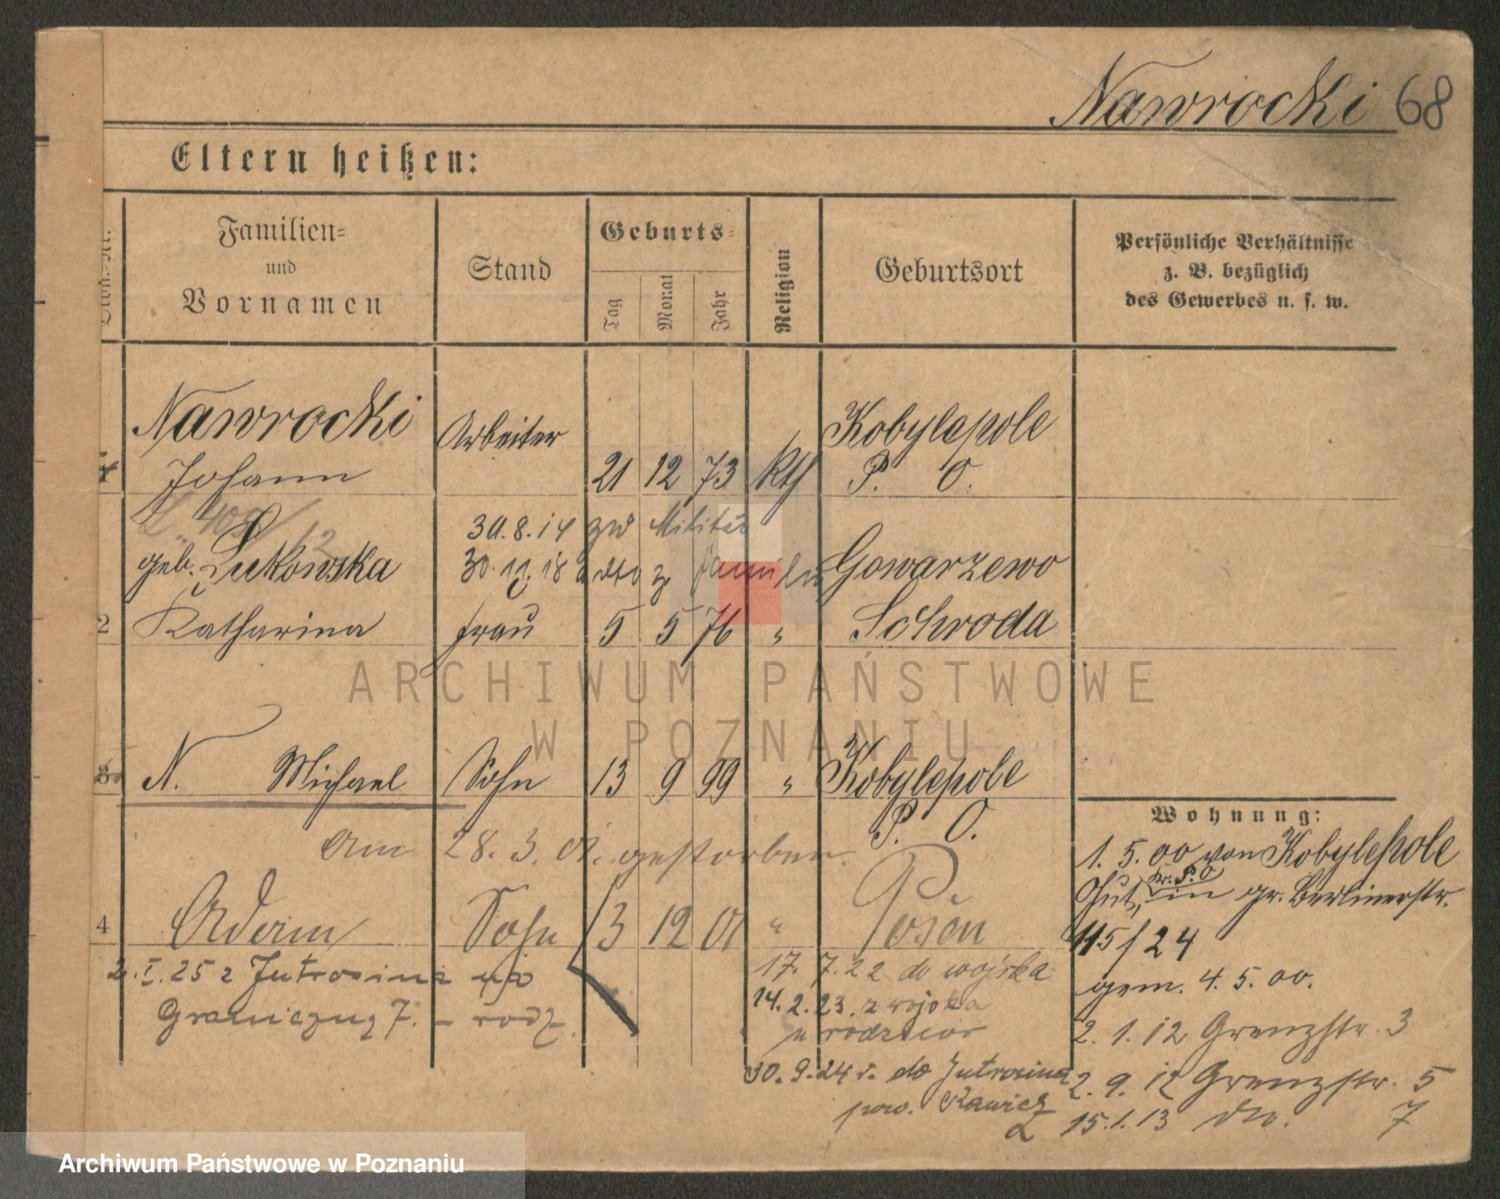 Nawrocki 68
Eltern heißen:
Familien-
und
Vornamen
Stand
Geburts-
Tag
Monat
Jahr
Religion
Geburtsort
Persönliche Verhältnisse
z. B. bezüglich
des Gewerbes u. s. w.
Nawrocki Arbeiter Kobylepole
Johann 21 12 73 kth P. O.
30.8.14 Militär
geb. Lukowska 30.11.18 Gowarzewo
2 Katharina Frau 5 5 76 " Schroda
3 N. Michael Sohn 13 9 99 " Kobylepole
P. O.
Am 28. 3. 01. gestorben.
4 Adam Sohn 13 12 01 " Posen
2.I.25 z Jutrosina na
Granicznej 7. – rodz.
17. 7.22 do wojska
14.2.23. z wojska
u rodziców
30.9.24 r. do Jutrosina
pow. Rawicz
Wohnung:
1. 5. 00 von Kobylepole
Gut, Kr. P. O in gr. Berlinerstr.
115/24
gem. 4. 5. 00.
2. 1. 12 Grenzstr. 3
2. 9. 12 Grenzstr. 5
15.1.13 do. 7
ARCHIWUM PAŃSTWOWE
W POZNANIU
Archiwum Państwowe w Poznaniu